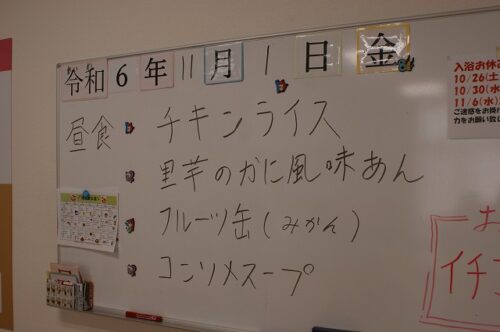 令和6年11月1日金
昼食
チキンライス
里芋のかに風味あん
フルーツ缶(みかん)
コンソメスープ
入浴お休
10/26(土
10/30(水
11/6(水
ご迷惑をお掛け
力をお願い致し
お
イチ